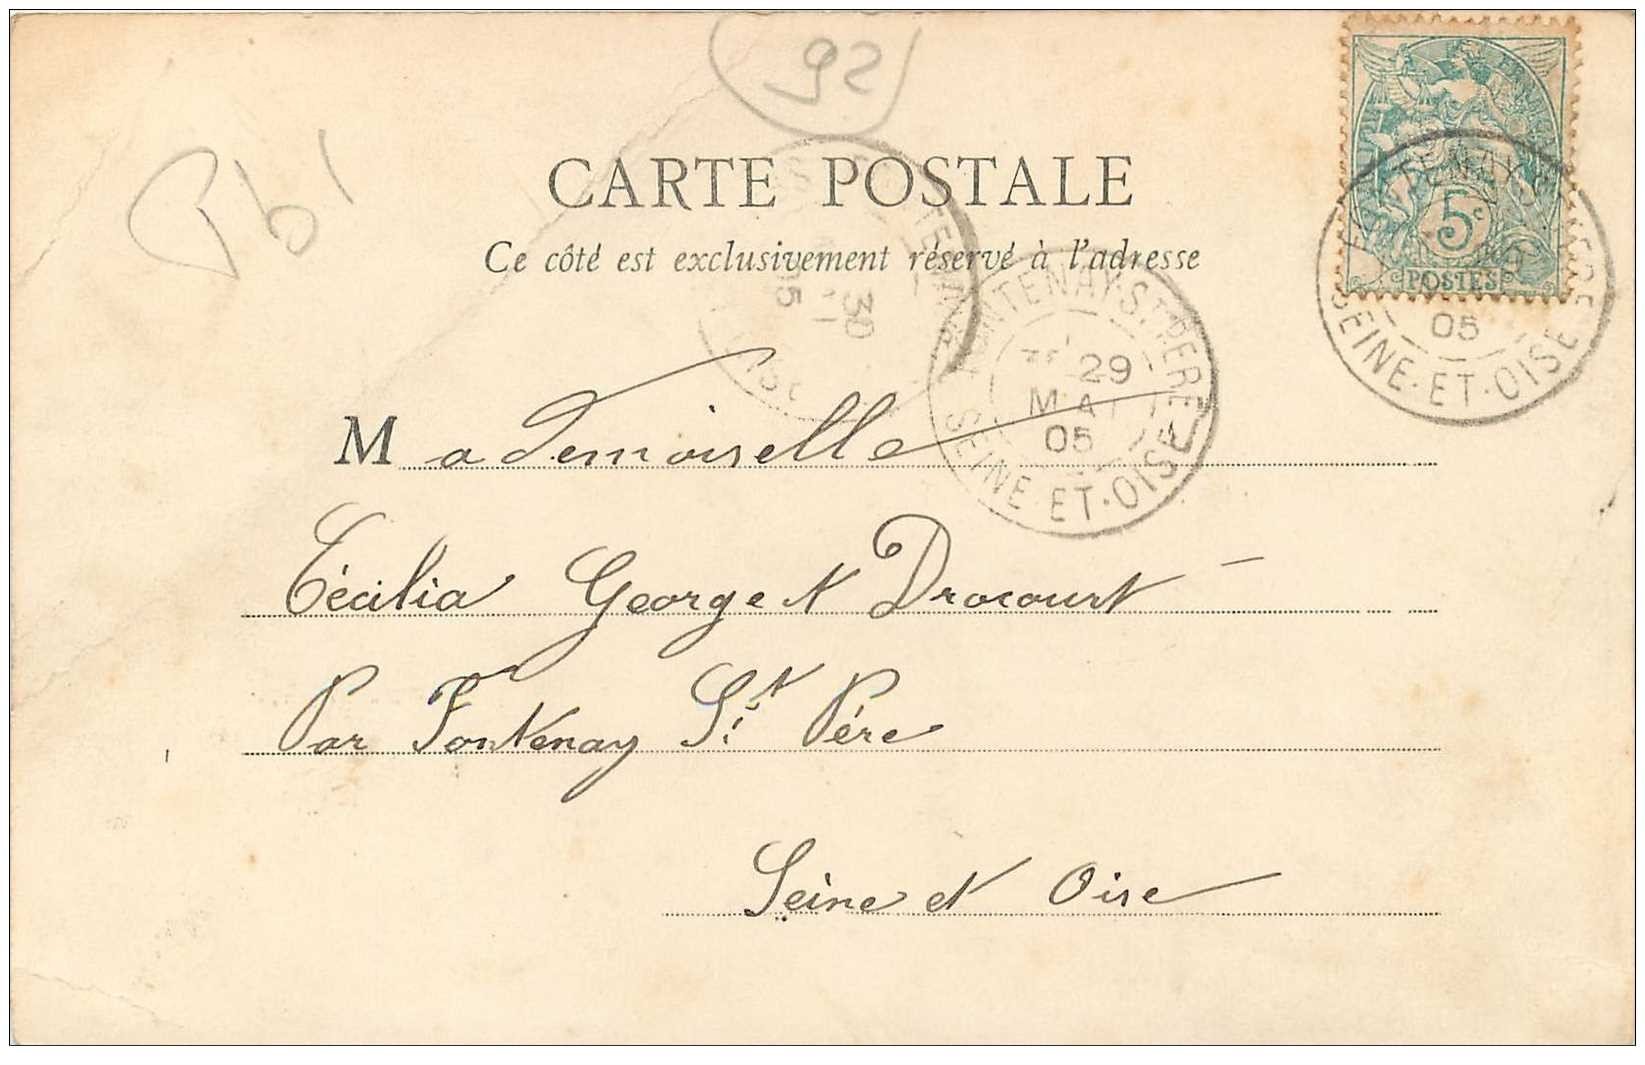 92
CARTE POSTALE
Ce côté est exclusivement réservé à l'adresse
5c
POSTES
FONTENAY-ST PERE
29
MAI
05
SEINE-ET-OISE
05
SEINE-ET-OISE
30
05
Mademoiselle
Cécilia George et Drocourt
Par Fontenay St Père
Seine et Oise